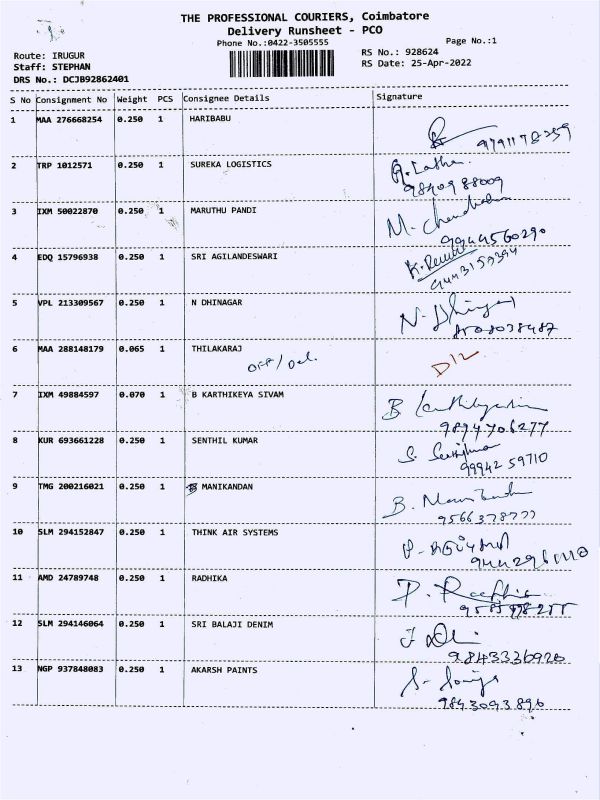 THE PROFESSIONAL COURIERS, Coimbatore
Delivery Runsheet - PCO
Phone No.:0422-3505555
Page No.:1
Route: IRUGUR
RS No.: 928624
Staff: STEPHAN
RS Date: 25-Apr-2022
DRS No.: DCJB92862401
S No Consignment No Weight PCS Consignee Details Signature
1 MAA 276668254 0.250 1 HARIBABU
9791178259
2 TRP 1012571 0.250 1 SUREKA LOGISTICS R. Latha
9840988009
3 IXM 50022870 0.250 1 MARUTHU PANDI M.
9944560290
4 EDQ 15796938 0.250 1 SRI AGILANDESWARI
9443159394
5 VPL 213309567 0.250 1 N DHINAGAR N.
6 MAA 288148179 0.065 1 THILAKARAJ
OFF/Del. D12
7 IXM 49884597 0.070 1 B KARTHIKEYA SIVAM B
9894706277
8 KUR 693661228 0.250 1 SENTHIL KUMAR S.
99942 59710
9 TMG 200216021 0.250 1 MANIKANDAN B.
10 SLM 294152847 0.250 1 THINK AIR SYSTEMS
11 AMD 24789748 0.250 1 RADHIKA P.
12 SLM 294146064 0.250 1 SRI BALAJI DENIM
9843336920
13 NGP 937848083 0.250 1 AKARSH PAINTS S.
9843093896